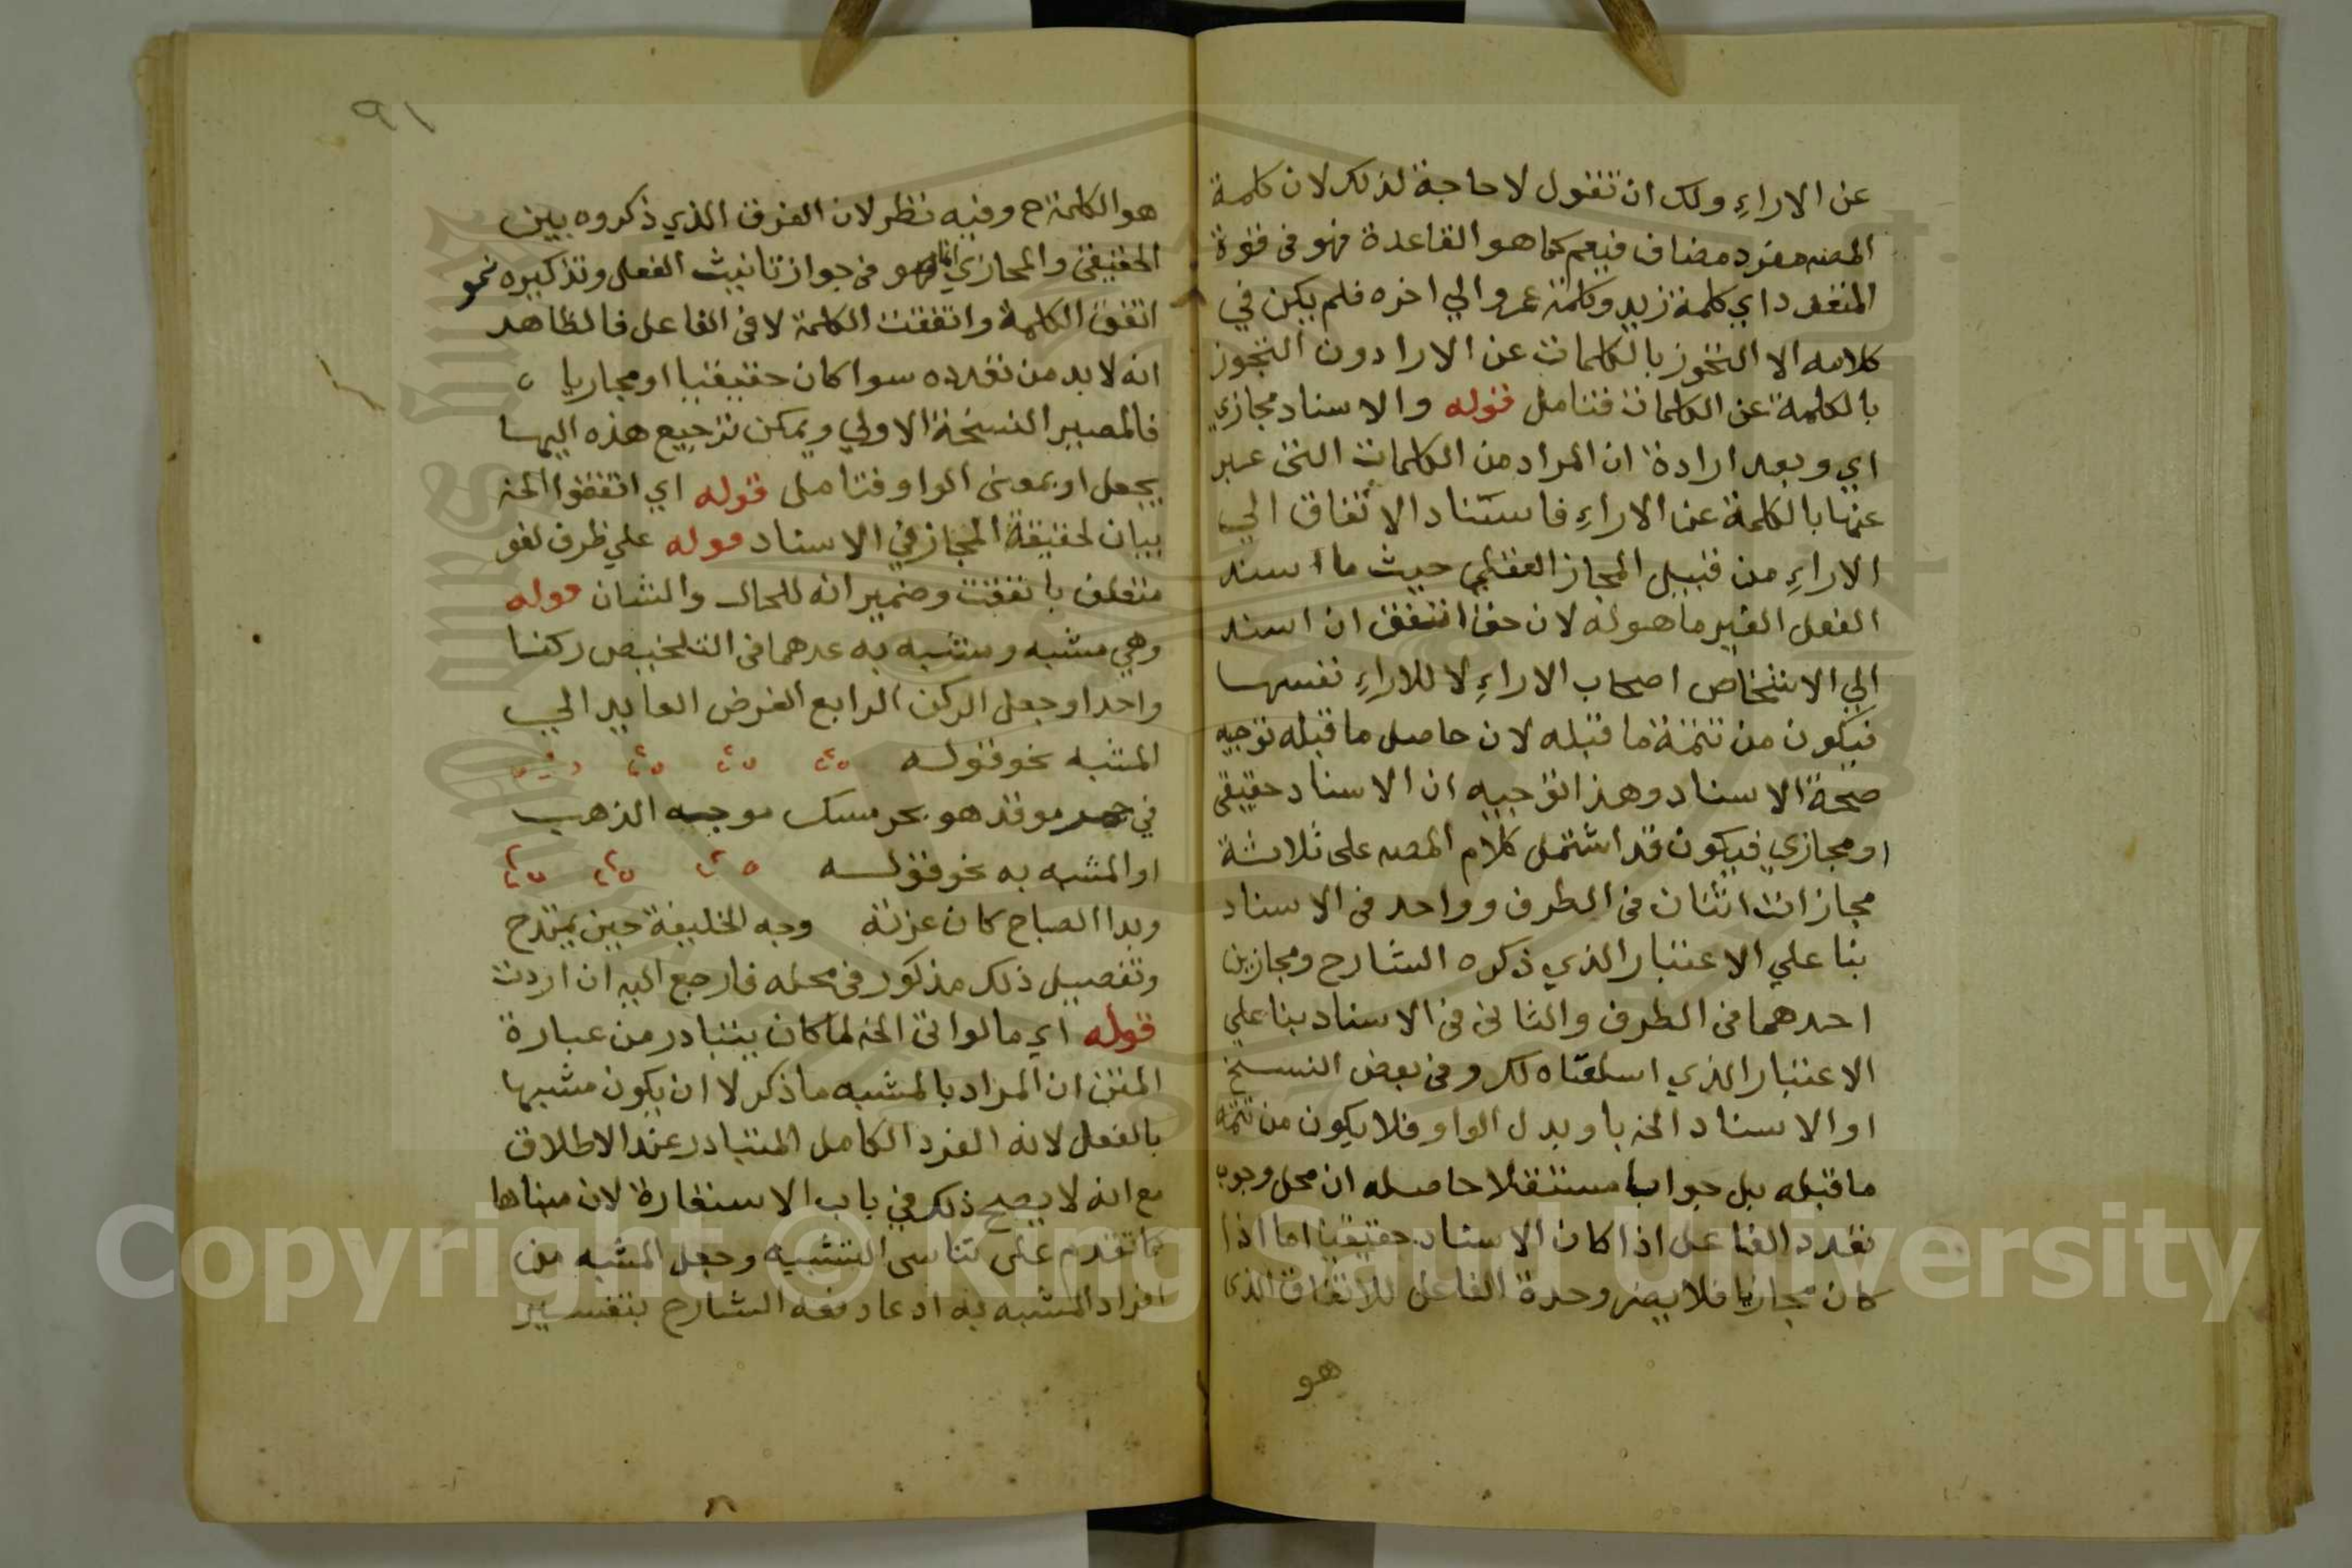 عن الاراءِ ولك ان تقول لا حاجة لذلك لان كلمة
المصه مفرد مضاف فيعم كما هو القاعدة فهو في قوة
المتعدد اي كلمة زيد وكلمة عمرو الي اخره فلم يكن في
كلامه الا التجوز بالكلمات عن الارا دون التجوز
بالكلمة عن الكلمات فتامل قوله والاسناد مجازي
اي وبعد ارادة ان المراد من الكلمات التي عبر
عنها بالكلمة عن الاراءِ فاستناد الاتفاق الي
الاراءِ من قبيل المجاز العقلي حيث ما اسند
الفعل الغير ما هو له لان حق اتفق ان اسند
الي الاشخاص اصحاب الاراءِ لا للاراءِ نفسها
فيكون من تتمة ما قبله لان حاصل ما قبله توجيه
صحة الاسناد وهذا توجيه ان الاسناد حقيقي
او مجازي فيكون قد اشتمل كلام المصه على ثلاثة
مجازات اثنان في الطرف وواحد في الاسناد
بنا علي الاعتبار الذي ذكره الشارح ومجازين
احدهما في الطرف والثاني في الاسناد بنا علي
الاعتبار الذي اسلفناه لك وفي بعض النسخ
او الاسناد الخ باو بدل الواو فلا يكون من تتمة
ما قبله بل جوابا مستقلا حاصله ان محل وجوب
تعدد الفاعل اذا كان الاسناد حقيقيا اما اذا
كان مجازيا فلا يضر وحدة الفاعل للاتفاق الذي
هو
٩١
هو الكلمة ح وفيه نظر لان الفرق الذي ذكروه بين
الحقيقي والمجازي انما هو في جواز تانيث الفعل وتذكيره نحو
اتفق الكلمة واتفقت الكلمة لا في الفاعل فالظاهر
انه لا بد من تعدده سوا كان حقيقيا او مجازيا
فالمصير النسخة الاولي ويمكن ترجيع هذه اليها
بجعل او بمعنى الواو فتامل قوله اي اتفقوا الخ
بيان لحقيقة المجاز في الاسناد قوله علي ظرف لغو
متعلق باتفقت وضمير انه للحال والشان قوله
وهي مشبه ومشبه به عدهما في التلخيص ركنا
واحدا وجعل الركن الرابع الغرض العايد الي
المشبه نحو قوله
في موقد هو بحر مسك موجه الذهب
او المشبه به نحو قوله
وبدا الصباح كان غرته وجه الخليفة حين يمتدح
وتفصيل ذلك مذكور في محله فارجع اليه ان اردت
قوله اي مالواتي الخ لما كان يتبادر من عبارة
المتن ان المراد بالمشبه ما ذكر لا ان يكون مشبها
بالفعل لانه الفرد الكامل المتبادر عند الاطلاق
مع انه لا يصح ذلك في باب الاستعارة لان مبناها
كما تقدم على تناسى التشبيه وجعل المشبه من
افراد المشبه به ادعا دفعه الشارح بتفسير
Copyright © King Saud University